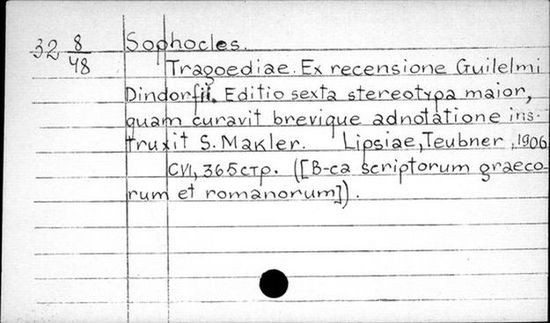 32 8/48 Sophocles.
Tragoediae. Ex recensione Guilelmi
Dindorfii. Editio sexta stereotypa maior,
quam curavit brevique adnotatione ins-
truxit S. Makler. Lipsiae, Teubner, 1906
CVI, 365 стр. ([B-ca scriptorum graeco-
rum et romanorum]).